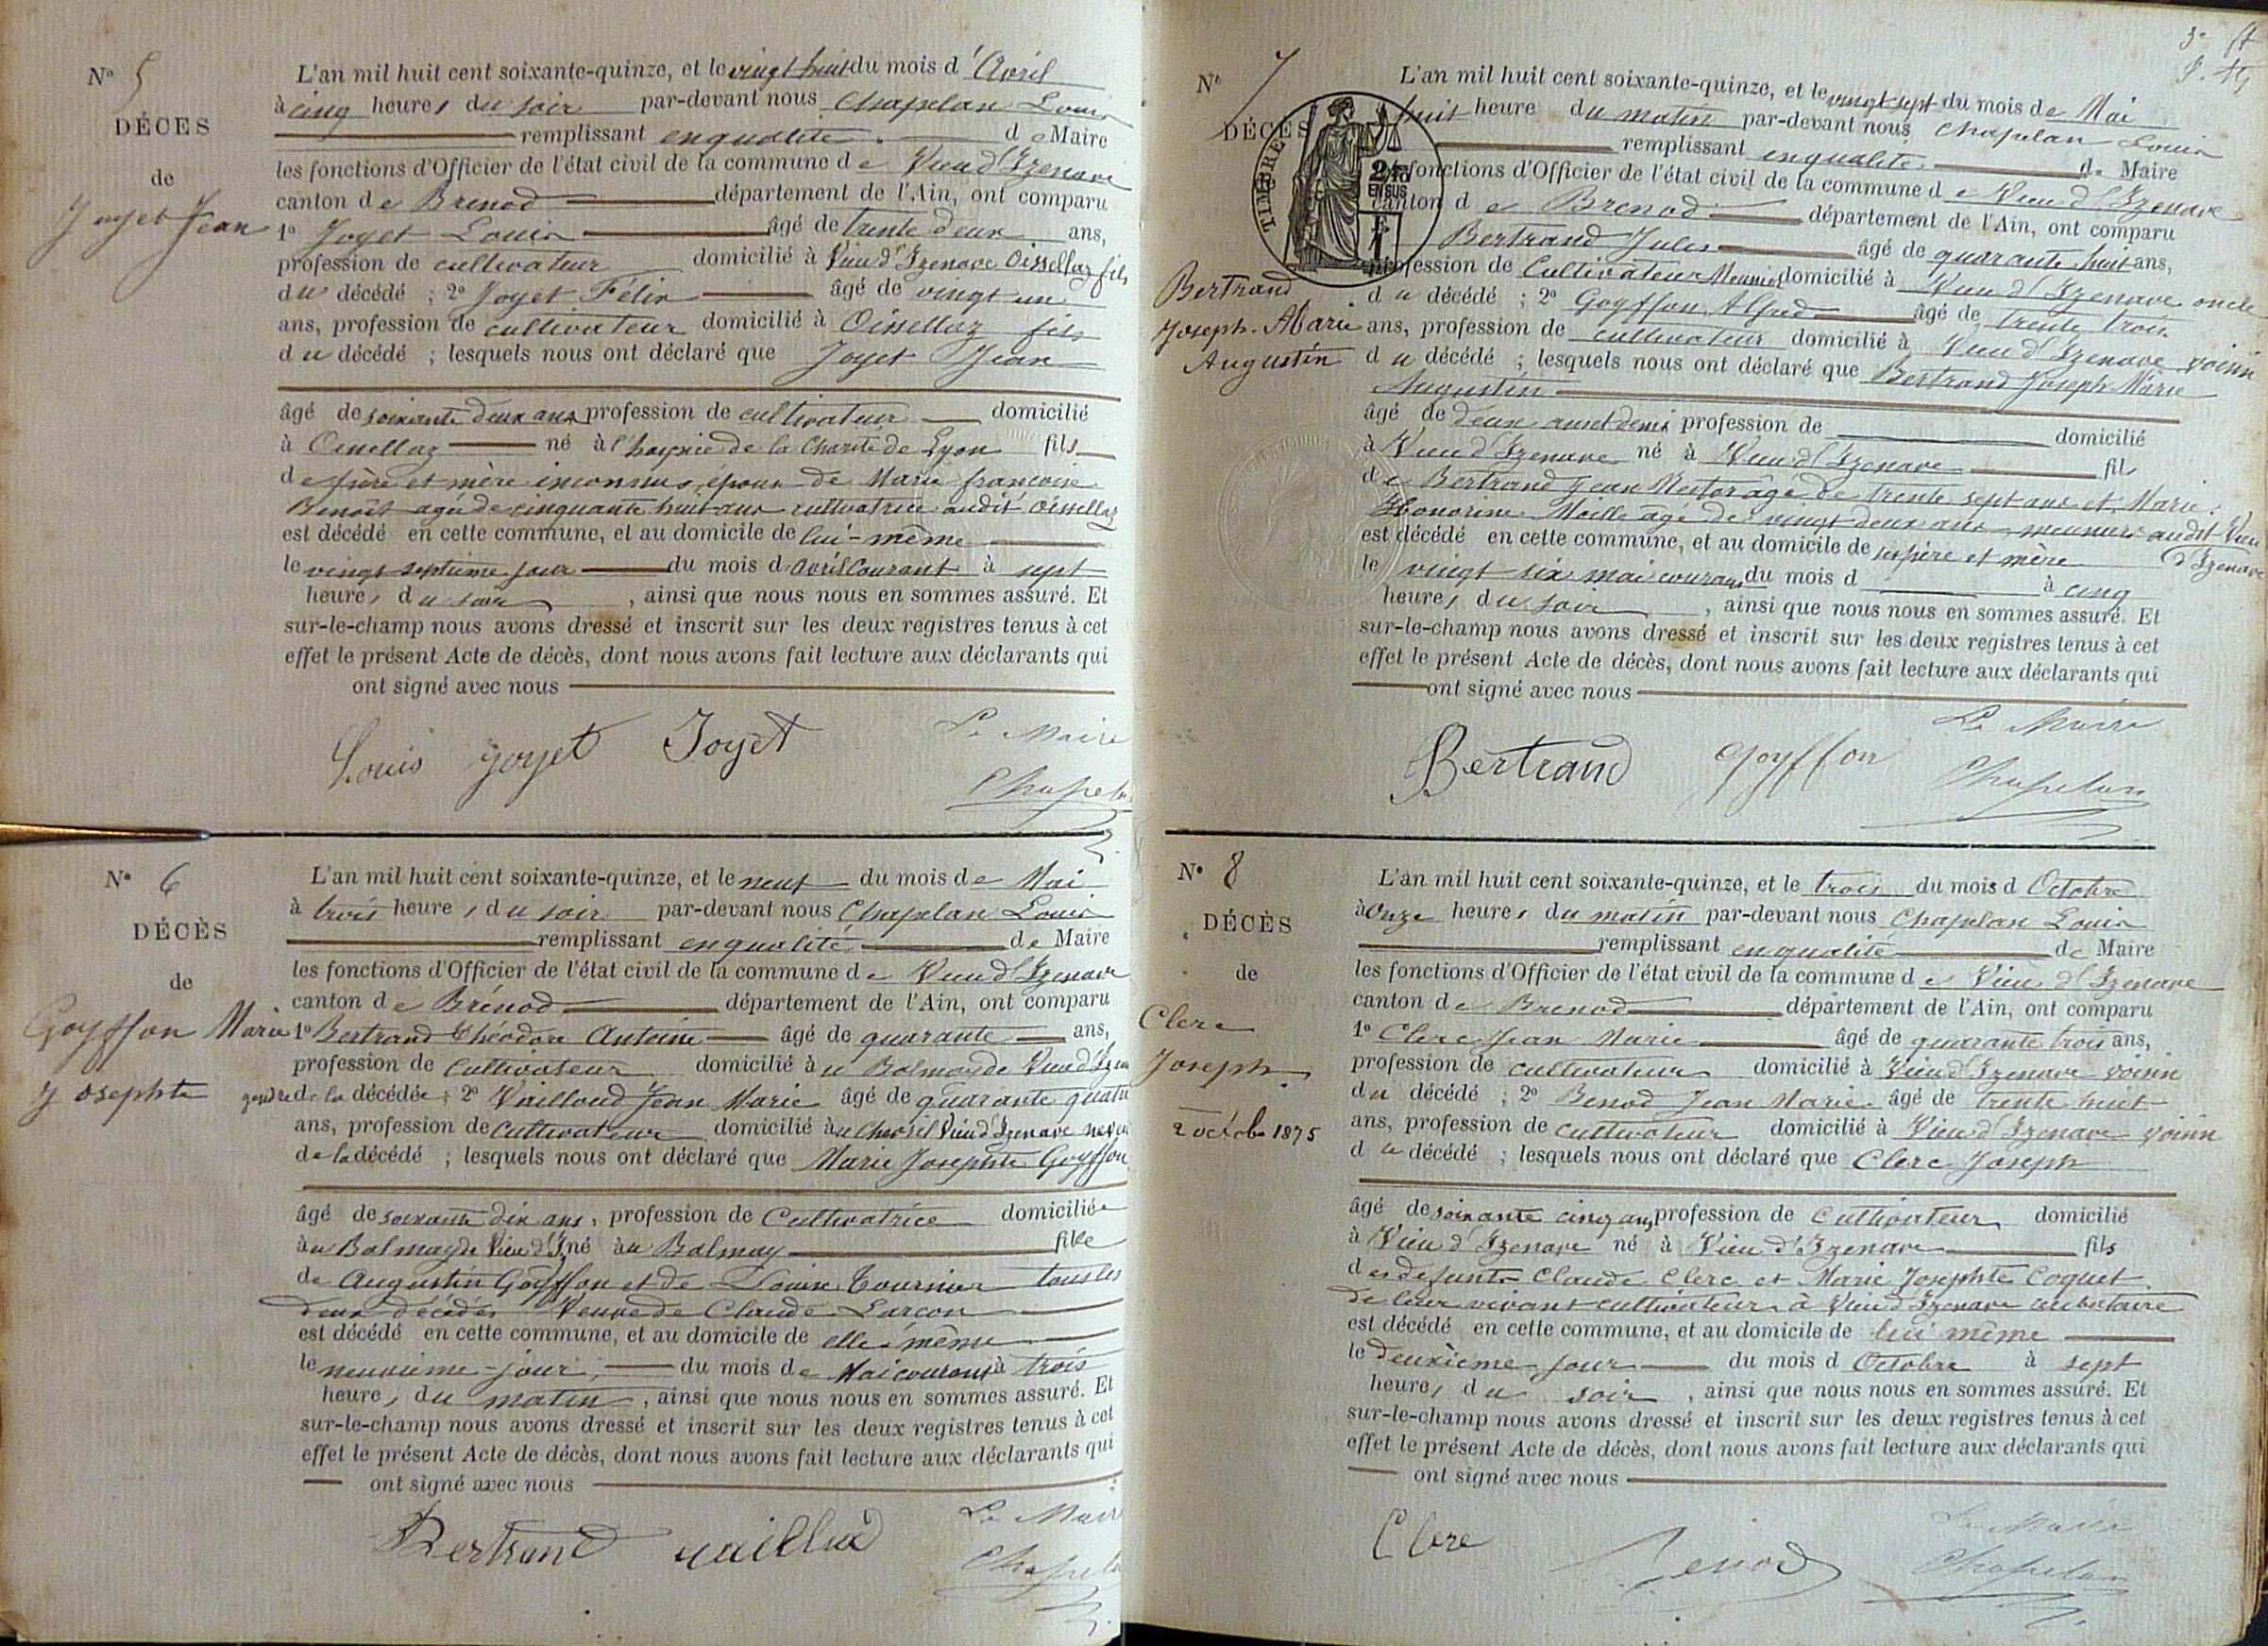 N° 5
DÉCÈS
de
Joyet Jean
L'an mil huit cent soixante-quinze, et le vingt huit du mois d'Avril
à cinq heures du soir par-devant nous Chapelan Louis
remplissant en qualité de Maire
les fonctions d'Officier de l'état civil de la commune de Vieu d'Izenave
canton de Brenod département de l'Ain, ont comparu
1° Joyet Louis âgé de trente deux ans,
profession de cultivateur domicilié à Vieu d'Izenave Oisellaz fils
du décédé ; 2° Joyet Félix âgé de vingt un
ans, profession de cultivateur domicilié à Oisellaz fils
du décédé ; lesquels nous ont déclaré que Joyet Jean
âgé de soixante deux ans profession de cultivateur domicilié
à Oisellaz né à l'hospice de la Charité de Lyon fils
de père et mère inconnus, époux de Marie françoise
Benoît agée de cinquante huit ans cultivatrice audit Oisellaz
est décédé en cette commune, et au domicile de lui-même
le vingt septième jour du mois d'avril courant à sept
heures du soir, ainsi que nous nous en sommes assuré. Et
sur-le-champ nous avons dressé et inscrit sur les deux registres tenus à cet
effet le présent Acte de décès, dont nous avons fait lecture aux déclarants qui
ont signé avec nous
Louis joyet Joyet Le Maire
Chapelan
N° 6
DÉCÈS
de
Goyffon Marie
Josephte
L'an mil huit cent soixante-quinze, et le neuf du mois de Mai
à trois heures du soir par-devant nous Chapelan Louis
remplissant en qualité de Maire
les fonctions d'Officier de l'état civil de la commune de Vieu d'Izenave
canton de Brénod département de l'Ain, ont comparu
1° Bertrand Théodore Antoine âgé de quarante ans,
profession de Cultivateur domicilié àu Balmay de Vieu d'Izen
gendre de la décédée ; 2° Vailloud Jean Marie âgé de quarante quatre
ans, profession de Cultivateur domicilié àu Chevril Vieu d'Izenave neveu
de la décédé ; lesquels nous ont déclaré que Marie Josephte Goyffon
âgé de soixante dix ans, profession de Cultivatrice domiciliée
àu Balmay de Vieu d'I né àu Balmay fille
de Augustin Goyffon et de Louise Tournier tous les
deux décédés Veuve de Claude Larçon
est décédé en cette commune, et au domicile de elle même
le neuvième jour du mois de Mai courant à trois
heures du matin, ainsi que nous nous en sommes assuré. Et
sur-le-champ nous avons dressé et inscrit sur les deux registres tenus à cet
effet le présent Acte de décès, dont nous avons fait lecture aux déclarants qui
ont signé avec nous
Bertrand vailloud Le Maire
Chapelan
N° 7
DÉCÈS
TIMBRE
EN SUS
Bertrand
Joseph-Marie
Augustin
L'an mil huit cent soixante-quinze, et le vingt sept du mois de Mai
huit heure du matin par-devant nous Chapelan Louis
remplissant en qualité de Maire
fonctions d'Officier de l'état civil de la commune de Vieu d'Izenave
canton de Brenod département de l'Ain, ont comparu
Bertrand Jules âgé de quarante huit ans,
profession de Cultivateur Meunier domicilié à Vieu d'Izenave oncle
du décédé ; 2° Goyffon Alfred âgé de trente trois
ans, profession de cultivateur domicilié à Vieu d'Izenave voisin
du décédé ; lesquels nous ont déclaré que Bertrand Joseph Marie
Augustin
âgé de deux ans et demi profession de domicilié
à Vieu d'Izenave né à Vieu d'Izenave fils
de Bertrand Jean Nestor âgé de trente sept ans et Marie
Honorine Moille âgé de vingt deux ans meuniers audit Vieu
d'Izenave
est décédé en cette commune, et au domicile de ses père et mère
le vingt six mai courant du mois d à cinq
heures du soir, ainsi que nous nous en sommes assuré. Et
sur-le-champ nous avons dressé et inscrit sur les deux registres tenus à cet
effet le présent Acte de décès, dont nous avons fait lecture aux déclarants qui
ont signé avec nous
Bertrand Goyffon Le Maire
Chapelan
N° 8
DÉCÈS
de
Clerc
Joseph
2 octobre 1875
L'an mil huit cent soixante-quinze, et le trois du mois d Octobre
à onze heures du matin par-devant nous Chapelan Louis
remplissant en qualité de Maire
les fonctions d'Officier de l'état civil de la commune de Vieu d'Izenave
canton de Brenod département de l'Ain, ont comparu
1° Clerc Jean Marie âgé de quarante trois ans,
profession de cultivateur domicilié à Vieu d'Izenave voisin
du décédé ; 2° Benod Jean Marie âgé de trente huit
ans, profession de cultivateur domicilié à Vieu d'Izenave voisin
du décédé ; lesquels nous ont déclaré que Clerc Joseph
âgé de soixante cinq ans profession de Cultivateur domicilié
à Vieu d'Izenave né à Vieu d'Izenave fils
des defunts Claude Clerc et Marie Josephte Coquet
de leur vivant cultivateur à Vieu d'Izenave celibataire
est décédé en cette commune, et au domicile de lui même
le deuxième jour du mois d Octobre à sept
heures du soir, ainsi que nous nous en sommes assuré. Et
sur-le-champ nous avons dressé et inscrit sur les deux registres tenus à cet
effet le présent Acte de décès, dont nous avons fait lecture aux déclarants qui
ont signé avec nous
Clerc Benod Le Maire
Chapelan